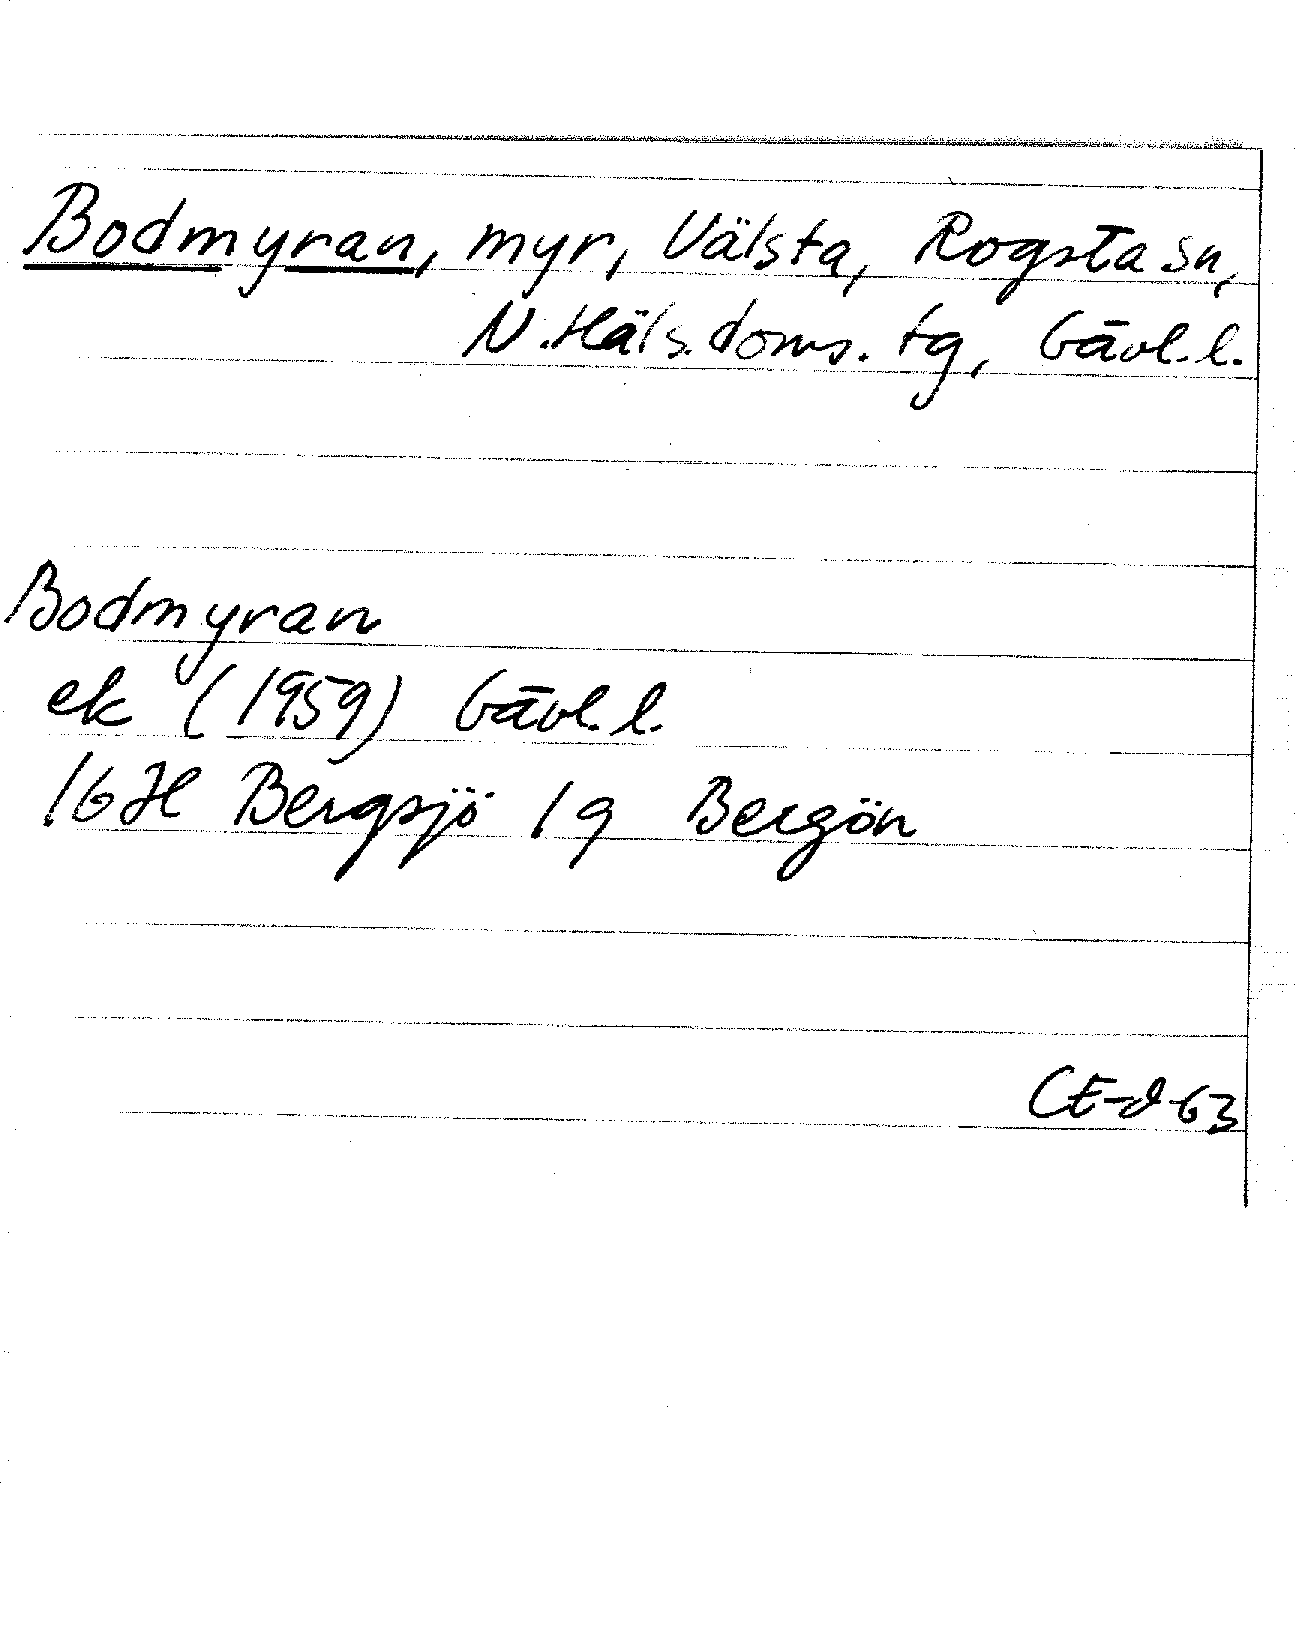 Bodmyran, myr, Välsta, Rogsta sn,
N. Häls. doms. tg, Gävl. l.
Bodmyran
ek (1959) Gävl. l.
16H Bergsjö 1g Bergön
CE-d 63